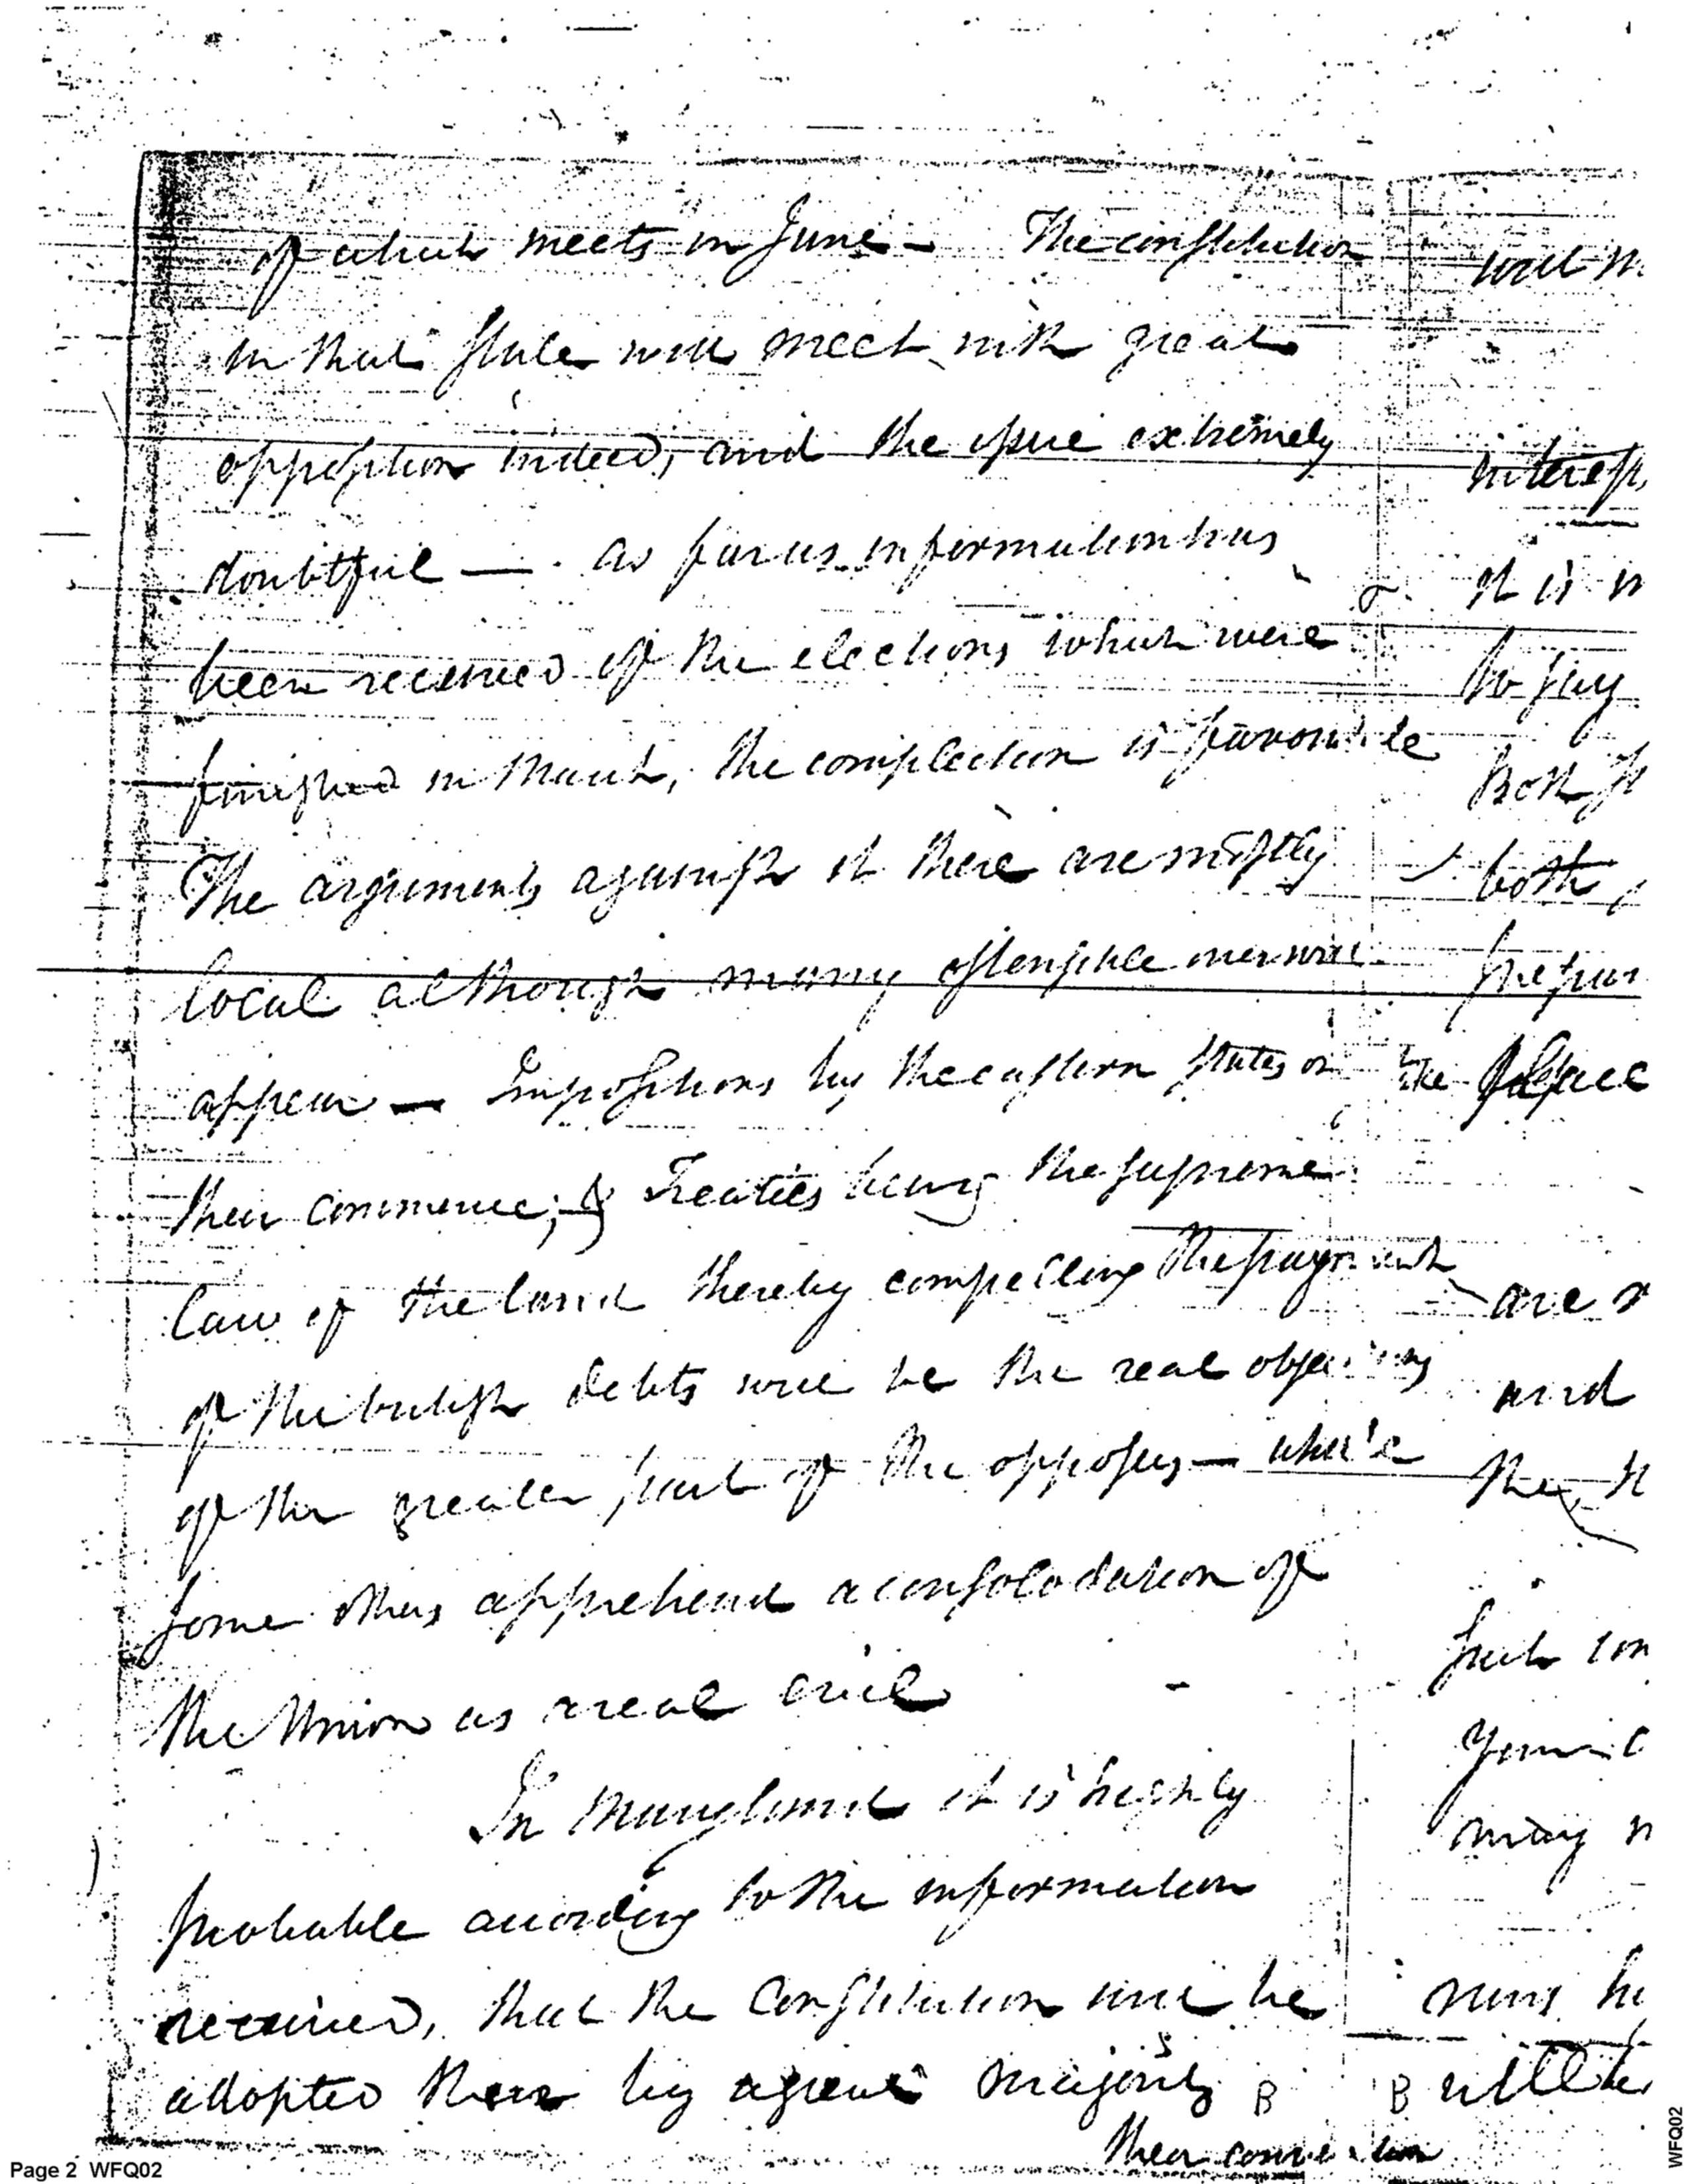 of which meets in June — The constitution
in that State will meet with great
opposition indeed, and the issue extremely
doubtful — . as far as information has
been received of the elections which were
finished in March, the complection is favorable
The arguments against it there are mostly
local although many ostensible ones will
appear — Impositions by the eastern States on
their commerce; & Treaties being the supreme
law of the land thereby compelling the payment
of the british debts will be the real objections
of the greater part of the opposers — while
some others apprehend a consolodation of
the Union as a real evil
In Maryland it is highly
probable according to the information
received, that the Constitution will be
adopted there by a great majority B
their convention
will
interest
it is
to say
Both
both
the
are
and
the
such
may
B will be
Page 2 WFQ02
WFQ02